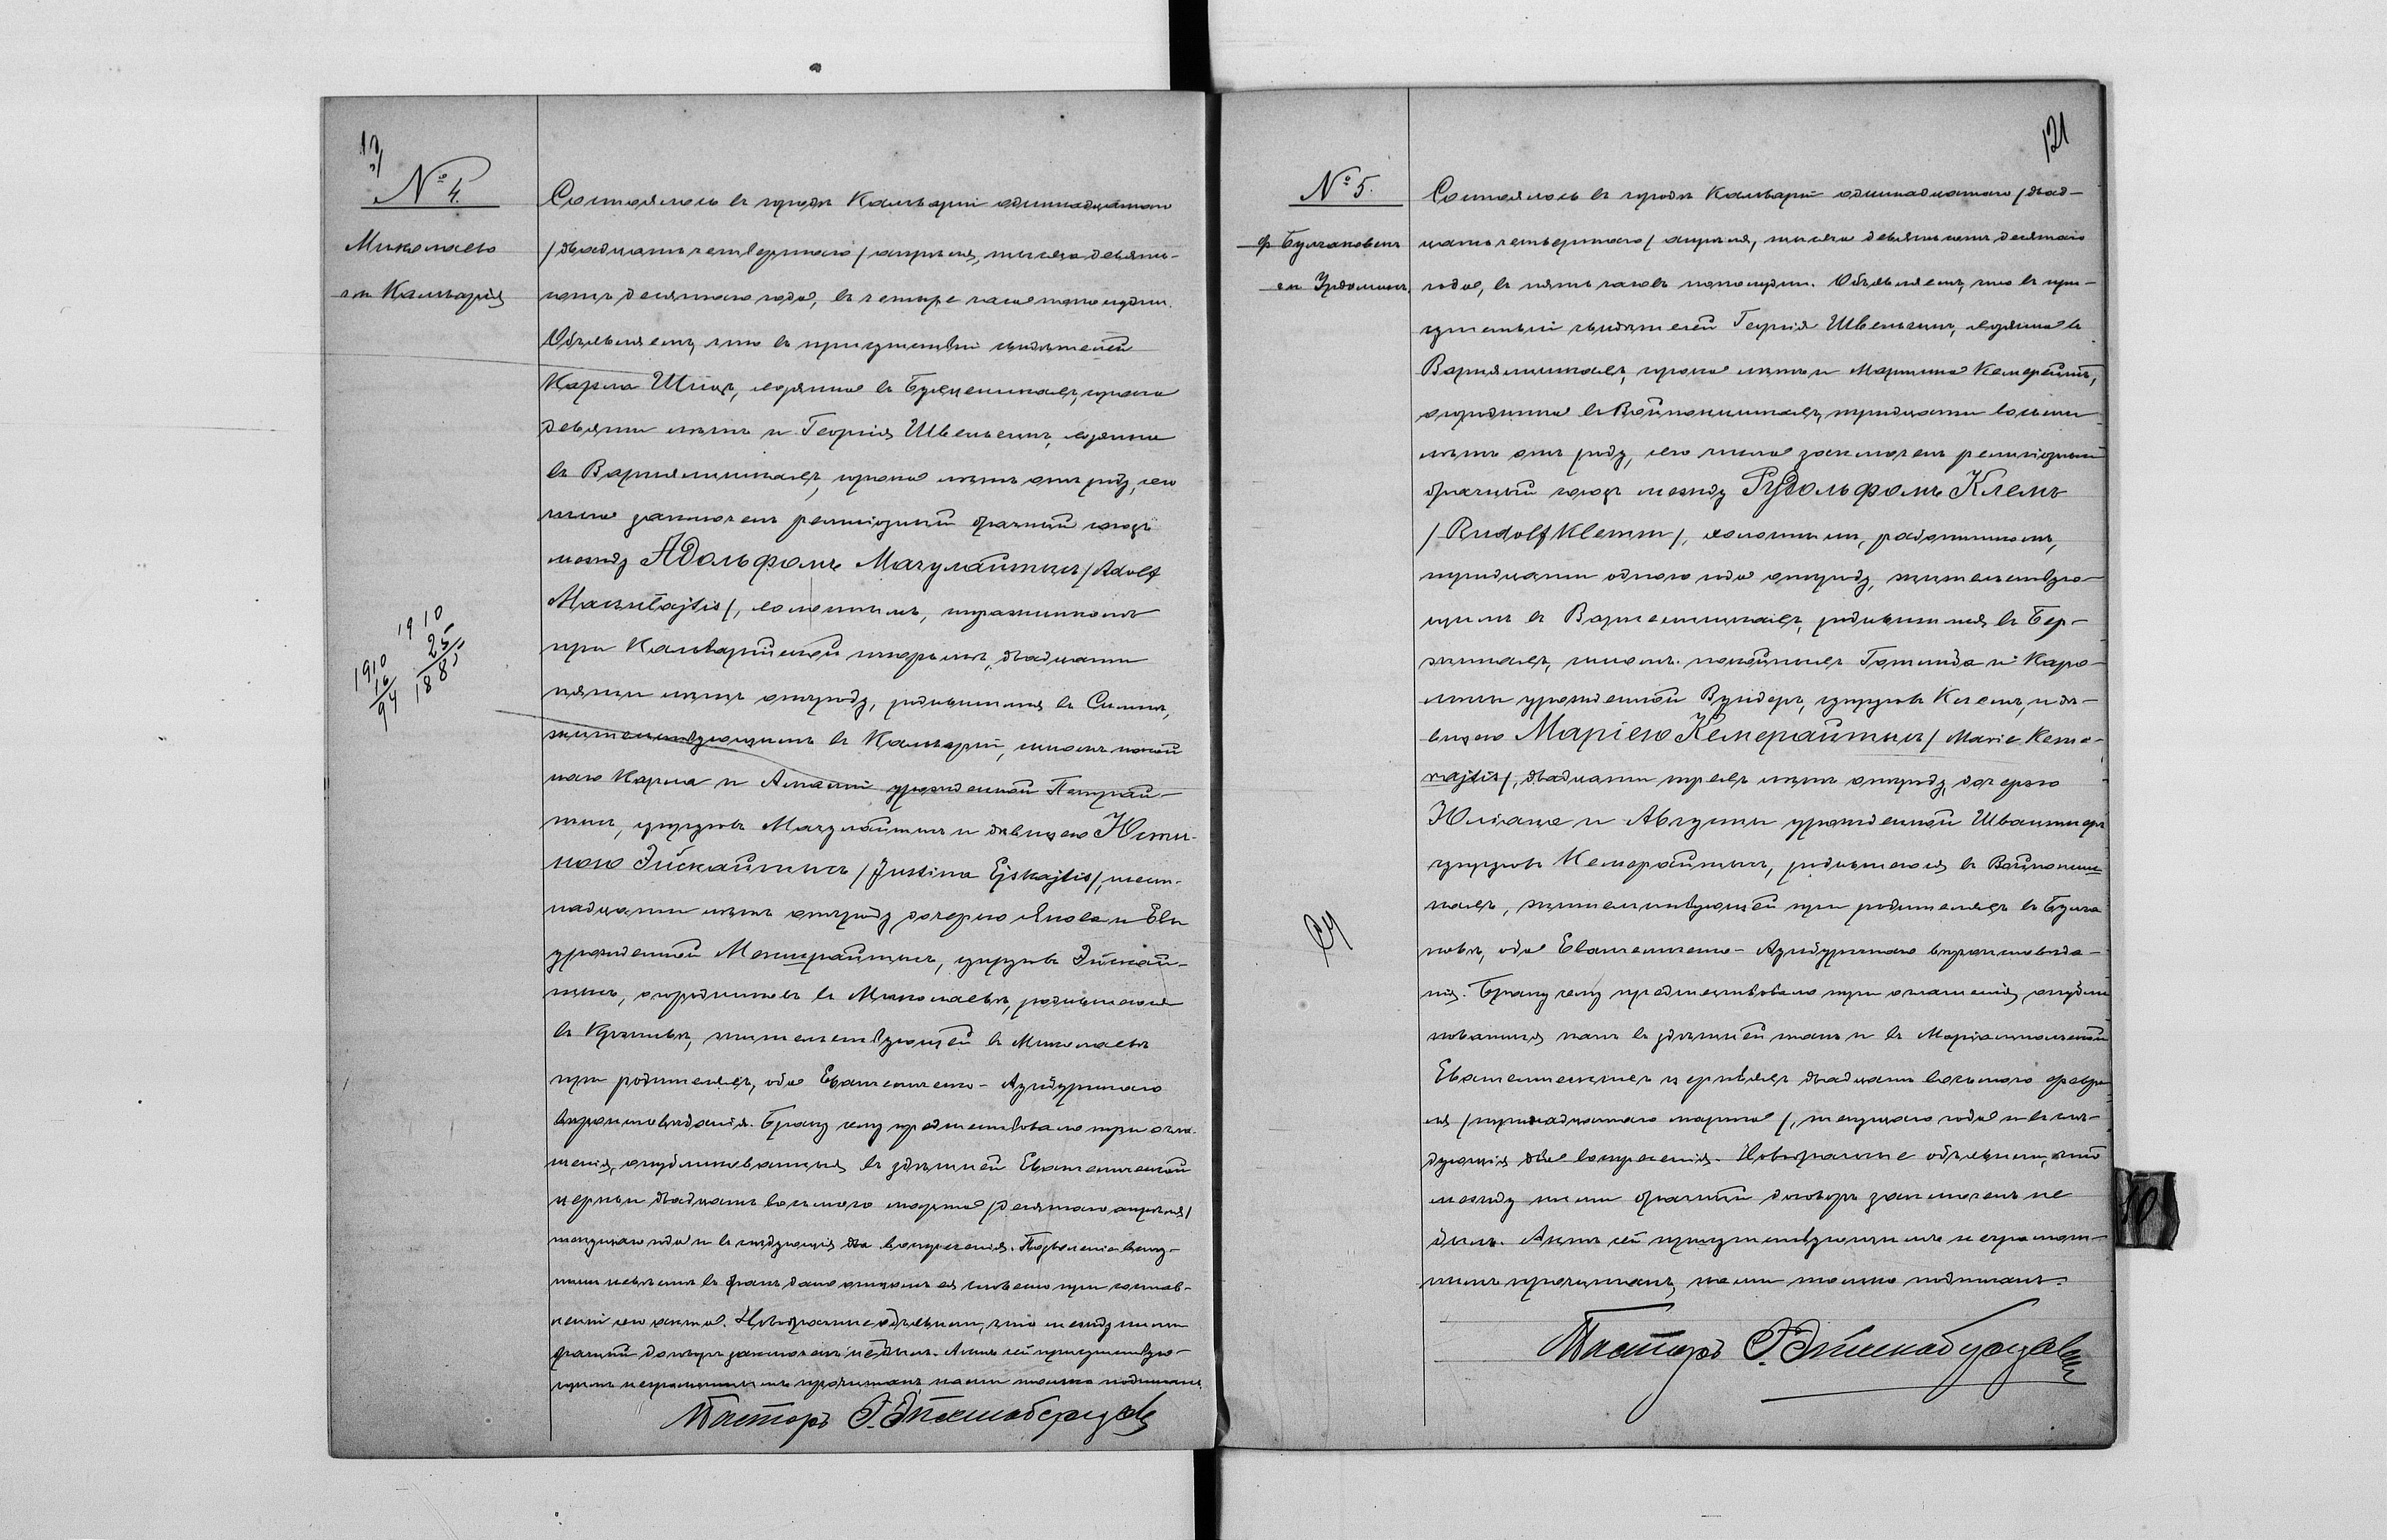 № 4.
Миколаево
гм. Кальварія
Состоялось въ городѣ Кальваріи одиннадцатаго
/двадцать четвертаго/ апрѣля, тысяча девять-
сотъ десятаго года, въ четыре часа пополудни.
Объявляемъ, что въ присутствіи свидѣтелей
Карла Шпицъ, хозяина въ сорока
девяти лѣтъ и Георгія хозяина
въ сорока лѣтъ отъ роду, сего
числа заключенъ религіозный брачный союзъ
между Адольфомъ Мачулайтисъ /Adolf
Maczulajtis/, холостымъ, стражникомъ
при Кальварійской тюрьмѣ, двадцати
пяти лѣтъ отъ роду, родившимся въ
жительствующимъ въ Кальваріи, сыномъ покой
наго Карла и Амаліи урожденной
тисъ, супруговъ Мачулайтисъ и дѣвицею Юсти-
ною Эйскайтисъ /Justina Ejskajtis/, шест-
надцати лѣтъ отъ роду дочерью Якова и Евы
урожденной супруговъ Эйскай-
тисъ, огородниковъ въ Миколаевѣ, родившеюся
въ жительствующей въ Миколаевѣ
при родителяхъ, оба Евангелическо-Аугсбургскаго
вѣроисповѣданія. Браку сему предшествовало три огла-
шенія, опубликованныя въ здѣшней Евангелической
церкви двадцать восьмого марта /десятаго апрѣля/
текущаго года и въ слѣдующія два воскресенія. Позволеніе
невѣстѣ въ бракъ дано отцомъ ея словесно при состав-
леніи сего акта. Новобрачные объявили, что между ними
брачный договоръ заключенъ не былъ. Актъ сей присутствую-
щимъ неграмотнымъ прочитанъ, нами только подписанъ.
Пасторъ
1910
25
1885
1910
16
94
121
№ 5.
ф. Булаковскъ
гм. Урдоминъ
Состоялось въ городѣ Кальваріи одиннадцатаго /двад-
цать четвертаго/ апрѣля, тысяча девятьсотъ десятаго
года, въ пять часовъ пополудни. Объявляемъ, что въ при-
сутствіи свидѣтелей Георгія хозяина въ
сорока лѣтъ и Мартина Кемерайтисъ,
огородника въ тридцати восьми
лѣтъ отъ роду, сего числа заключенъ религіозный
брачный союзъ между Рудольфомъ Клемъ
/Rudolf Klemm/, холостымъ, работникомъ,
тридцати одного года отъ роду, жительствую-
щимъ въ родившимся въ Бер-
жинахъ, сыномъ покойныхъ Готлиба и Каро-
лины урожденной Вундеръ, супруговъ Клемъ, и дѣ-
вицею Маріею Кемерайтисъ /Marie Keme-
rajtis/, двадцати трехъ лѣтъ отъ роду, дочерью
Юліана и Августы урожденной
супруговъ Кемерайтисъ, родившеюся въ
жительствующей при родителяхъ въ
оба Евангелическо-Аугсбургскаго вѣроисповѣда-
нія. Браку сему предшествовало три оглашенія, опубли
кованныя какъ въ здѣшней такъ и въ Маріампольской
Евангелическихъ церквахъ двадцать восьмого февра
ля /тринадцатаго марта/, текущаго года и въ слѣ-
дующія два воскресенія. Новобрачные объявили, что
между ними брачный договоръ заключенъ не
былъ. Актъ сей присутствующимъ неграмот-
нымъ прочитанъ, нами только подписанъ.
Пасторъ